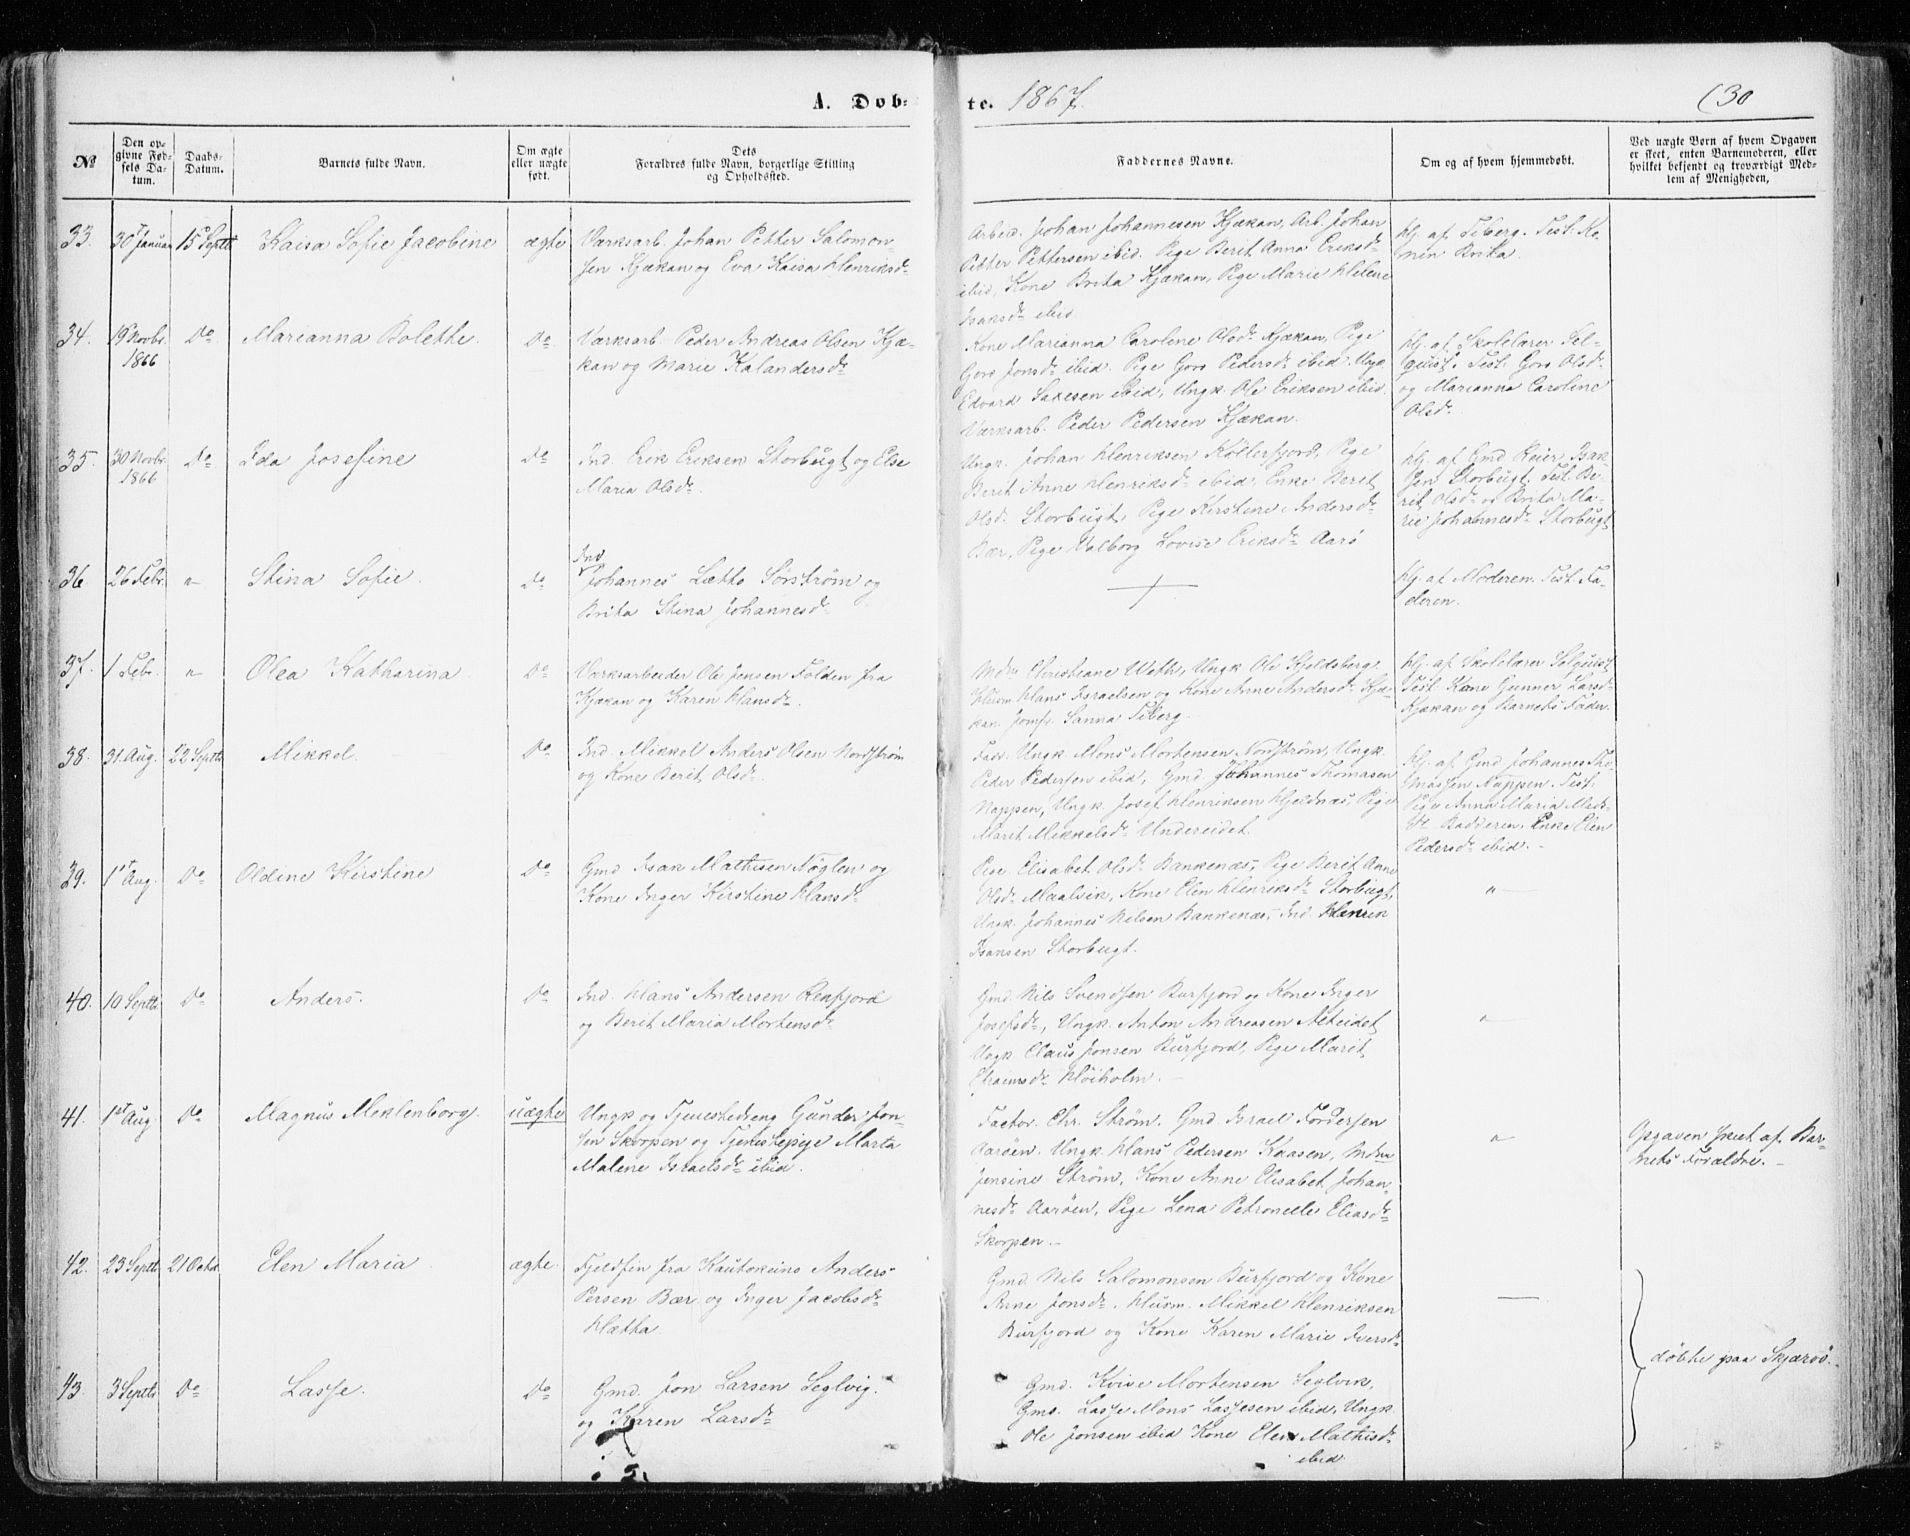 A. Døb-
te. 1867.
(30
№
Den op-
givne Fød-
sels Da-
tum.
Daabs-
Datum.
Barnets fulde Navn.
Om ægte
eller uægte
født.
Dets
Forældres fulde Navn, borgerlige Stilling
og Opholdssted.
Faddernes Navne.
Om og af hvem hjemmedøbt.
Ved uægte Børn af hvem Opgaven
er skeet, enten Barnemoderen, eller
hvilket bekjendt og troværdigt Med-
lem af Menigheden,
33. 30 Januar 15 Septb Kaisa Sofie Jacobine ægte
Værksarb. Johan Petter Salomon-
sen Kjækan og Eva Kaisa Henriksdr
Arbeid. Johan Johannesen Kjækan, Arb. Johan
Petter Pettersen ibid. Pige Berit Anna Eriksdr
ibid, Kone Brita Kjækan, Pige Marie Helene
Isaksdr ibid
Hj. af Tiberg. Test. Ko-
nen Brita.
34. 19 Novbr. 1866 Do Marianna Bolette. Do
Værksarb. Peder Andreas Olsen Kjæ-
kan og Marie Kalandersdr
Kone Marianna Carolene Olsdr Kjækan, Pige
Gors Jonsdr ibid. Pige Gors Pedersdr ibid. Ungk.
Edvard Saxesen ibid, Ungk. Ole Eriksen ibid.
Værksarb. Peder Pedersen Kjækan.
Hj. af Skolelærer Sel-
quist. Test. Gors Olsdr
og Marianna Caroline
Olsdr.
35. 30 Novbr. 1866 Do Ida Josefine Do
Ind. Erik Eriksen Storbugt og Else
Maria Olsdr.
Ungk. Johan Henriksen Kollerfjord, Pige
Berit Anne Henriksdr ibid, Enke Berit
Olsd. Storbugt, Pige Kirstine Andersdr
Bær, Pige Valborg Lovise Eriksdr Aarø
Hj. af Gmd Reier Isak-
sen Storbugt. Test. Be-
rit Olsdr og Brita Ma-
rie Johannesdr Storbugt
36. 26 Febr. " Stina Sofie. Do
Ind
Johannes Lætto Sørstrøm og
Brita Stina Johannesdr
+
Hj. af Moderen. Test. Fa-
deren.
37. 1 Febr. " Olea Katharina Do
Værksarbeider Ole Jensen Folden fra
Kjækan og Karen Hansdr.
Mdm Christiane Weth, Ungk Ole Kjeldsberg
Husm Hans Israelsen og Kone Anne Andersdr Kjæ-
kan. Jomfr. Sanna Tiberg.
Hj. af Skolelærer Selquist
Test. Kone Gunner Larsdr
Kjækan og Barnets Fader.
38. 31 Aug. 22 Septb Mikkel. Do
Ind. Mikkel Anders Olsen Nordstrøm
og Kone Berit Olsdr.
Fad. Ungk. Mons Mortensen Nordstrøm, Ungk.
Peder Pedersen ibid, Gmd Johannes Thomasen
Nappen, Ungk. Josef Henriksen Hjeldnæs, Pige
Marit Mikkelsdr Undereidet.
Hj. af Gmd Johannes Tho-
massen Nappen. Test.
Pige Anna Maria Mads-
dr Badderen. Enke Elen
Pedersdr ibid.
39. 1st Aug. Do Oldine Kirstine Do
Gmd Isak Mathisen Nøglen og
Kone Inger Kirstine Hansdr.
Pige Elisabet Olsdr Bankenæs, Pige Berit Anne
Olsdr Maalsik, Kone Elen Henriksdr Storbugt,
Ungk. Johannes Nilsen Bankenæs, Ind. Henrik
Isansen Storbugt.
"
40. 10 Septb. Do Anders. Do
Ind. Hans Andersen Renfjord
og Berit Maria Mortensdr
Gmd. Nils Svendsen Burfjord og Kone Inger
Josefsdr, Ungk. Anton Andreasen Alteidet
Ungk Claus Jonsen Burfjord, Pige Marit
Efraimsdr Høiholm.
"
41. 1st Aug Do Magnus Meklenborg. uægte
Ungk og Tjenestedreng Gunder Jon-
sen Skorpen og Tjenestepige Marta
Malene Israelsdr ibid.
Factor Chr. Strøm, Gmd. Israel Fordersen
Aarøen. Ungk Hans Pedersen Kaasen, Mdm
Jensine Strøm, Kone Anne Elisabet Johan-
nesdr Aarøen, Pige Lena Petronelle Eliasdr
Skorpen.
"
Opgaven skeet af Bar-
nets Forældre.
42. 23 Septb. 21 Octob Elen Maria ægte.
Fjeldfin fra Kautokeino Anders
Persen Bær og Inger Jacobsdr
Hætta
Gmd. Nils Salomonsen Burfjord og Kone
Anne Jonsdr. Husm. Mikkel Henriksen
Burfjord og Kone Karen Marie Iversdr
43. 3 Septb. Do Lasse. Do
Gmd. Jon Larsen Seglvig.
og Karen Larsdr
Gmd. Kvive Mortensen Seglvik,
Gmd. Lasse Mons Lassesen ibid, Ungk.
Ole Jonsen ibid Kone Elen Mathisdr
ibid
døbte paa Skjærvø.